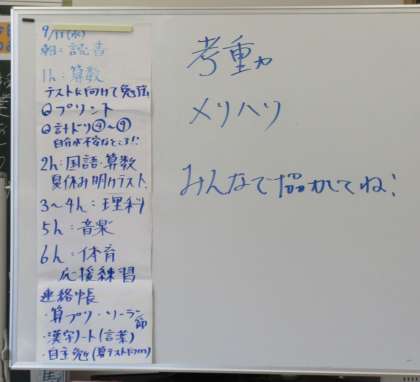 朝：読書
1h：算数
テストに向けて勉強
①プリント
②計ドリ④〜⑨
自分が不安なところ!!
2h：国語・算数
夏休み明けテスト
3〜4h：理科
5h：音楽
6h：体育
応援練習
連絡帳
・算プリ・ソーラン節
・漢字ノート(言葉)
・自主勉
考動力
メリハリ
みんなで協力してね！